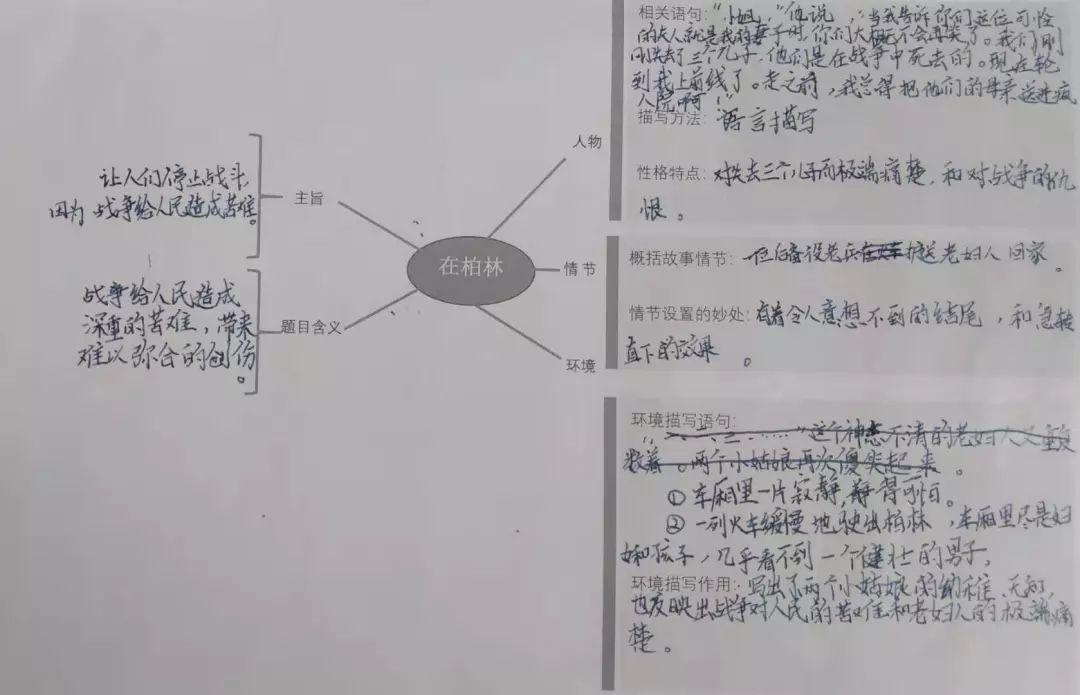 让人们停止战斗,
因为 战争给人民造成苦难。
主旨
战争给人民造成
深重的苦难，带来
难以弥合的创伤。
题目含义
在柏林
人物
相关语句："小姐，"他说，"当我告诉你们这位可怜
的夫人就是我的妻子时,你们大概不会再笑了。我们刚
刚失去了三个儿子,他们是在战争中死去的。现在轮
到我上前线了。走之前，我总得把他们的母亲送进疯
人院啊！"
描写方法：语言描写
性格特点：对失去三个儿子而极端痛楚,和对战争的仇
恨。
情节
概括故事情节：一位后备役老兵护送老妇人回家。
情节设置的妙处：有着令人意想不到的结尾，和急转
直下的效果。
环境
环境描写语句：
"一、二、三……"这个神志不清的老妇人又重复
数着。两个小姑娘再次傻笑起来。
①车厢里一片寂静,静得可怕。
②一列火车缓慢地驶出柏林，车厢里尽是妇
女和孩子，几乎看不到一个健壮的男子。
环境描写作用：写出了两个小姑娘的幼稚、无知,
也反映出战争对人民的苦难和老妇人的极端痛
楚。